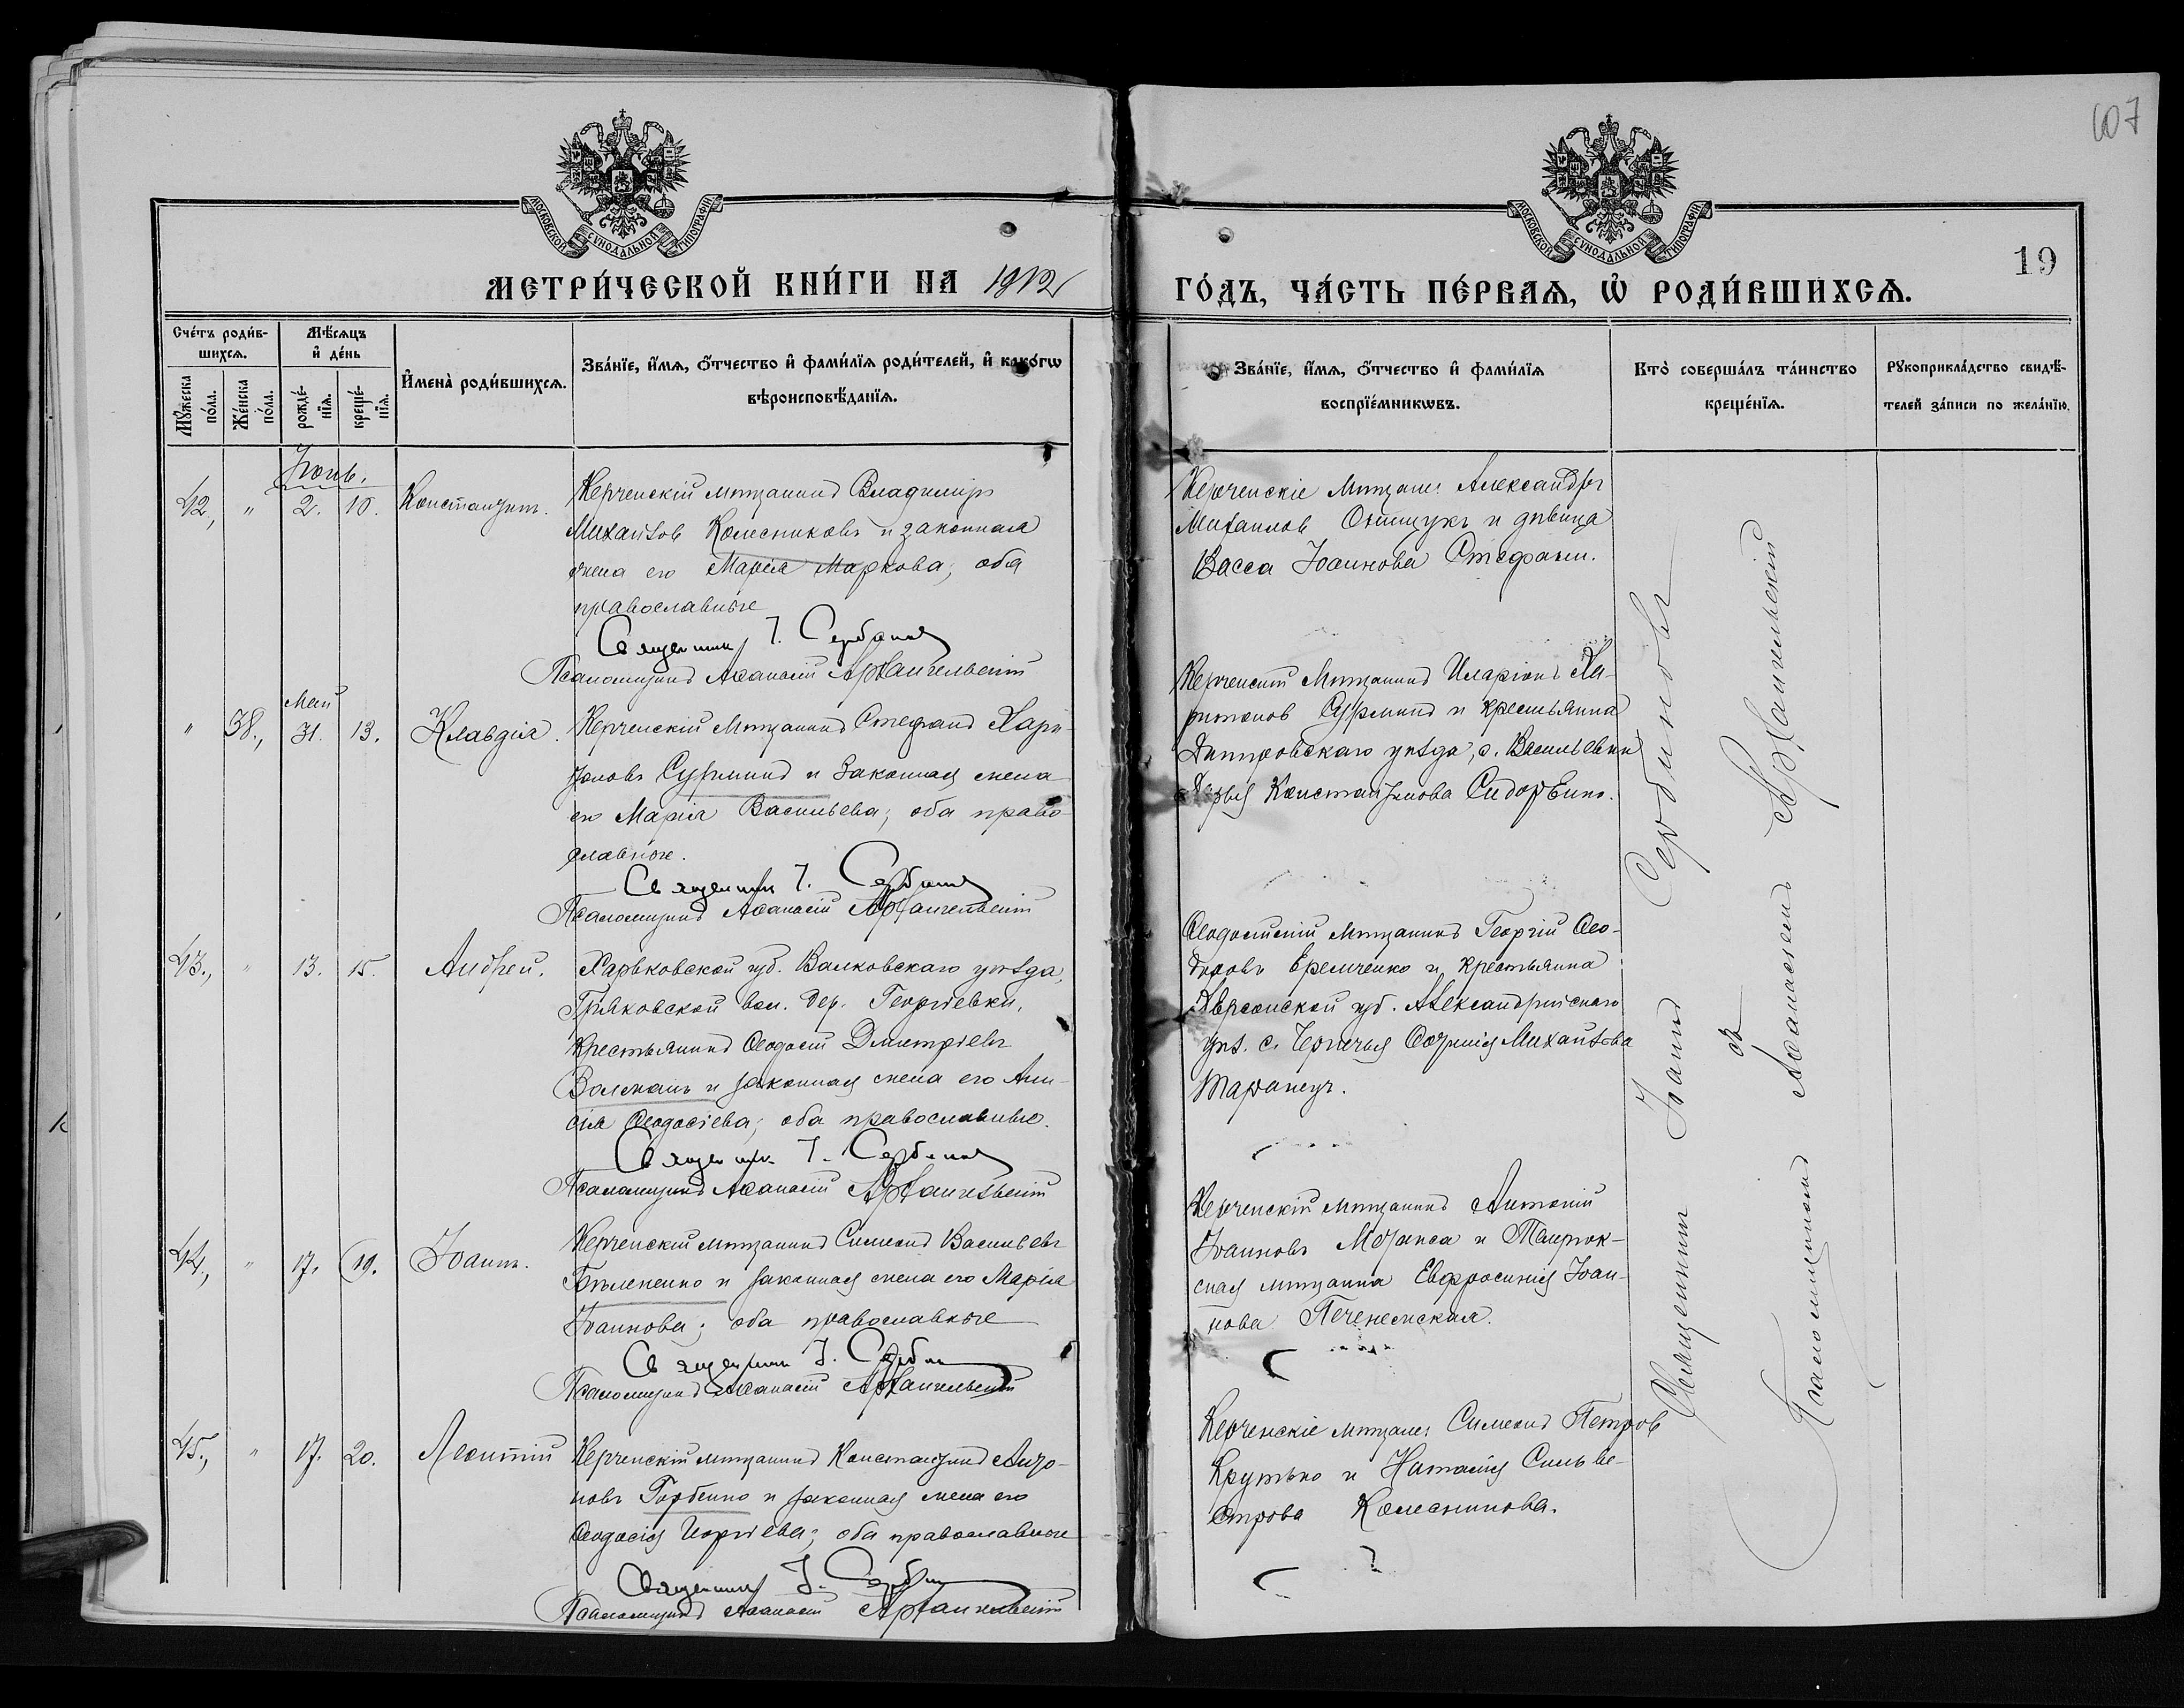 107
19
МОСКОВСКОЙ СѴНОДАЛЬНОЙ ТИПОГРАФІИ
МОСКОВСКОЙ СѴНОДАЛЬНОЙ ТИПОГРАФІИ
МЕТРИ́ЧЕСКОЙ КНИ́ГИ НА 1912
ГО́ДЪ, ЧА́СТЬ ПЕ́РВАѦ, Ѡ҆ РОДИ́ВШИХСѦ.
Сче́тъ роди́в-
шихсѧ.
Мѣ́сѧцъ
и҆ де́нь
Мꙋ́жеска
по́ла.
Же́нска
по́ла.
рожде́-
нїѧ.
креще́-
нїѧ.
И҆мена̀ роди́вшихсѧ.
Зва́нїе, и҆́мѧ, ѻ҆́тчество и҆ фами́лїѧ роди́телей, и҆ како́гѡ
вѣроисповѣ́данїѧ.
Зва́нїе, и҆́мѧ, ѻ҆́тчество и҆ фами́лїѧ
воспрїе́мникѡвъ.
Кто̀ соверша́лъ та́инство
креще́нїѧ.
Рꙋкоприкла́дство свидѣ́-
телей за́писи по жела́нїю.
Іюнь.
42, " 2. 10. Константинъ.
Керченскій мѣщанинъ Владиміръ
Михаиловъ Колесниковъ и законная
жена его Марія Маркова; оба
православные
Священникъ І. Сербиновъ
Псаломщикъ Аѳанасій Архангельскій
Керченскіе мѣщане: Александръ
Михаиловъ Онищукъ и дѣвица
Васса Іоаннова Стефани.
Май
" 38., 31. 13. Клавдія.
Керченскій мѣщанинъ Стефанъ Хари-
тоновъ Сурминъ и законная жена
его Марія Васильева; оба право-
славные.
Священникъ І. Сербиновъ
Псаломщикъ Аѳанасій Архангельскій
Керченскій мѣщанинъ Иларіонъ Ха-
ритоновъ Сурминъ и крестьянка
уѣзда, с. Васильевки
Константинова
43., " 13. 15. Андрей.
Харьковской губ. Валковскаго уѣзда,
вол. дер. Георгіевки,
крестьянинъ Ѳеодосій Димитріевъ
и законная жена его Ани-
сія Ѳеодосіева; оба православные.
Священникъ І. Сербиновъ
Псаломщикъ Аѳанасій Архангельскій
Ѳеодосійскій мѣщанинъ Георгій Ѳео-
доровъ Еремченко и крестьянка
Херсонской губ. Александрійскаго
уѣз. с. Михаилова
Таранецъ.
44., " 17. 19. Іоаннъ.
Керченскій мѣщанинъ Симеонъ Васильевъ
и законная жена его Марія
Іоаннова; оба православные
Священникъ І. Сербиновъ
Псаломщикъ Аѳанасій Архангельскій
Керченскій мѣщанинъ Антоній
Іоанновъ и Темрюк-
ская мѣщанка Евфросинія Іоан-
нова Печенежская.
45., " 17. 20. Леонтій
Керченскій мѣщанинъ Константинъ Анто-
новъ Горбенко и законная жена его
Ѳеодосія Георгіева; оба православные
Священникъ І. Сербиновъ
Псаломщикъ Аѳанасій Архангельскій
Керченскіе мѣщане: Симеонъ Петровъ
Крутько и Наталія Сильве-
строва Колесникова.
Священникъ Іоаннъ Сербиновъ
съ
Псаломщикомъ Аѳанасіемъ Архангельскій